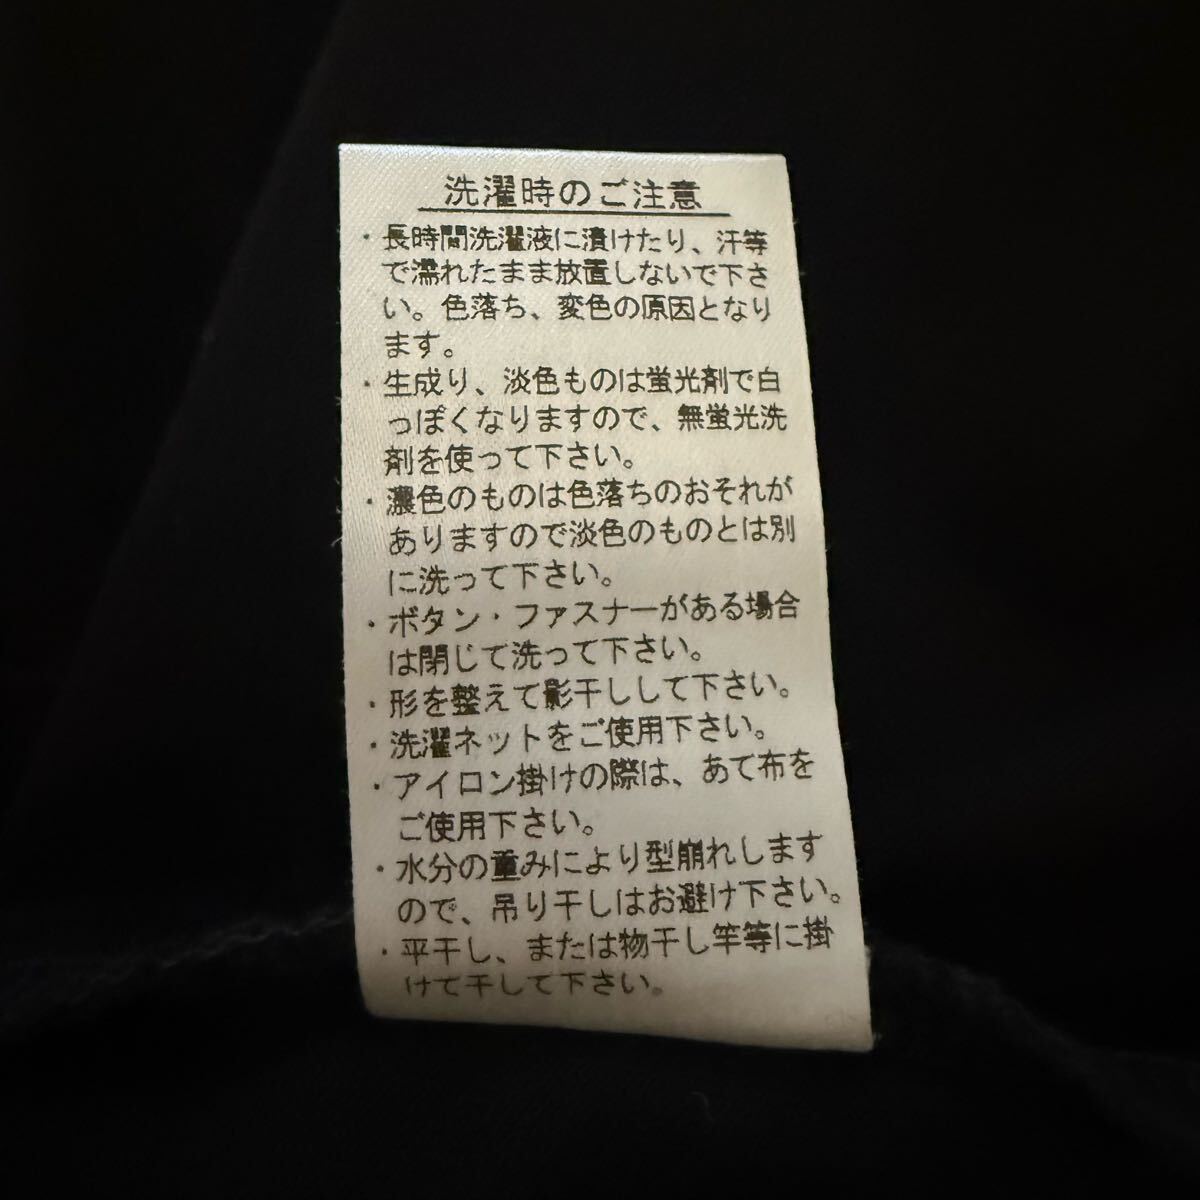 洗濯時のご注意
・長時間洗濯液に漬けたり、汗等
で濡れたまま放置しないで下さ
い。色落ち、変色の原因となり
ます。
・生成り、淡色ものは蛍光剤で白
っぽくなりますので、無蛍光洗
剤を使って下さい。
・濃色のものは色落ちのおそれが
ありますので淡色のものとは別
に洗って下さい。
・ボタン・ファスナーがある場合
は閉じて洗って下さい。
・形を整えて影干しして下さい。
・洗濯ネットをご使用下さい。
・アイロン掛けの際は、あて布を
ご使用下さい。
・水分の重みにより型崩れします
ので、吊り干しはお避け下さい。
・平干し、または物干し竿等に掛
けて干して下さい。